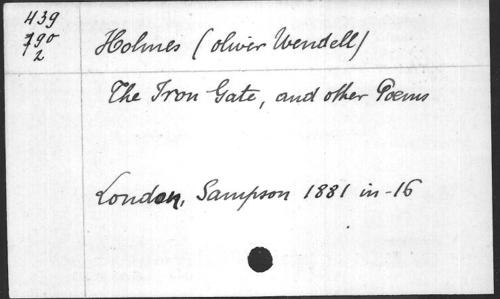 439
790
2
Holmes (oliver Wendell)
The Iron Gate, and other Poems
London, Sampson 1881 in-16